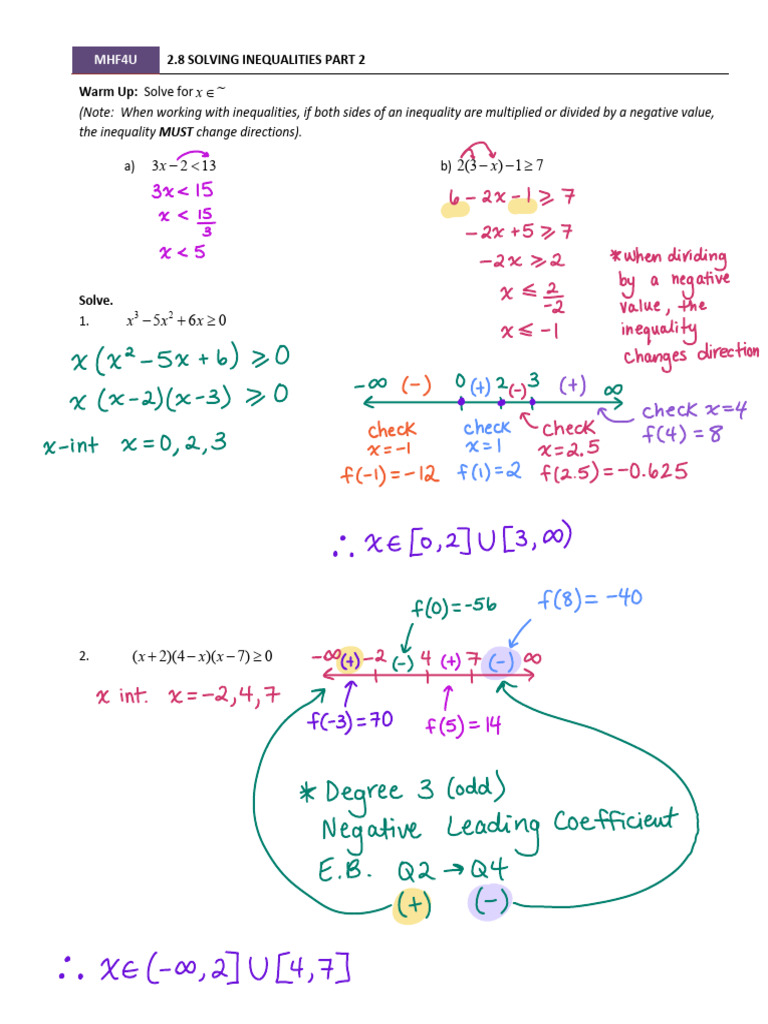 MHF4U 2.8 SOLVING INEQUALITIES PART 2
Warm Up: Solve for x ∈ ~
(Note: When working with inequalities, if both sides of an inequality are multiplied or divided by a negative value,
the inequality MUST change directions).
a) 3x − 2 < 13
3x < 15
x < 15/3
x < 5
b) 2(3 − x) − 1 ≥ 7
6 − 2x − 1 ≥ 7
−2x + 5 ≥ 7
−2x ≥ 2
x ≤ 2/−2
x ≤ −1
* when dividing
by a negative
value, the
inequality
changes direction
Solve.
1. x³ − 5x² + 6x ≥ 0
x(x² − 5x + 6) ≥ 0
x(x−2)(x−3) ≥ 0
x-int x = 0, 2, 3
−∞ (−) 0 (+) 2 (−) 3 (+) ∞
check
x = −1
f(−1) = −12
check
x = 1
f(1) = 2
check
x = 2.5
f(2.5) = −0.625
check x = 4
f(4) = 8
∴ x ∈ [0, 2] ∪ [3, ∞)
f(0) = −56
f(8) = −40
2. (x + 2)(4 − x)(x − 7) ≥ 0
x int. x = −2, 4, 7
−∞ (+) −2 (−) 4 (+) 7 (−) ∞
f(−3) = 70
f(5) = 14
* Degree 3 (odd)
Negative Leading Coefficient
E.B. Q2 → Q4
(+) (−)
∴ x ∈ (−∞, 2] ∪ [4, 7]